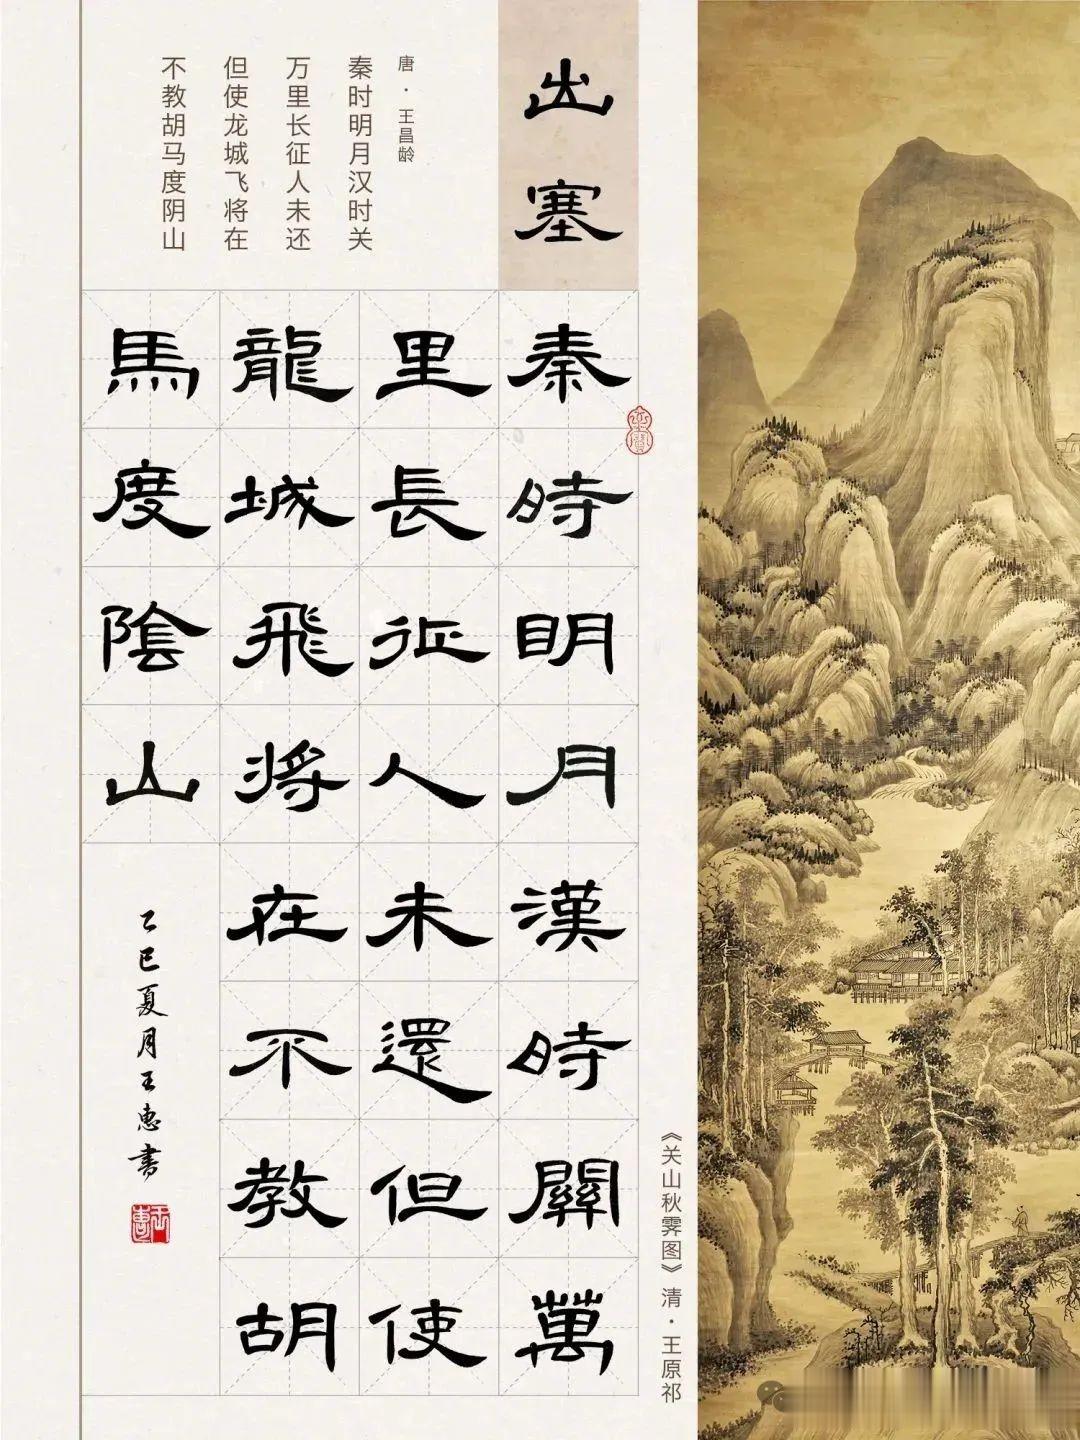 出塞
唐·王昌龄
秦时明月汉时关
万里长征人未还
但使龙城飞将在
不教胡马度阴山
秦時明月漢時關萬
里長征人未還但使
龍城飛將在不教胡
馬度陰山
乙巳夏月王惠書
《关山秋霁图》清·王原祁